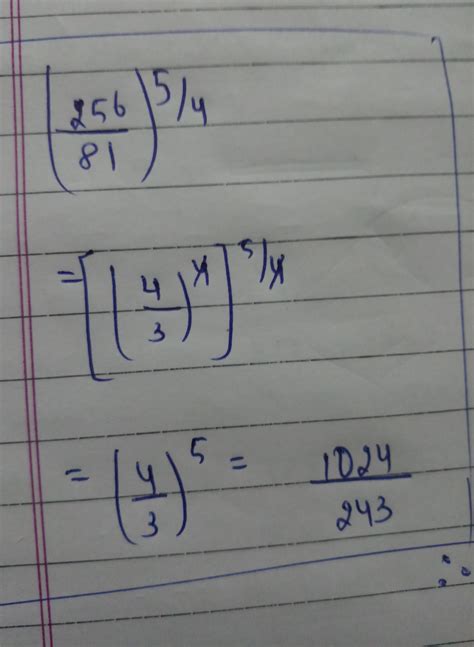 (256/81)^5/4
= [(4/3)^4]^5/4
= (4/3)^5 = 1024/243